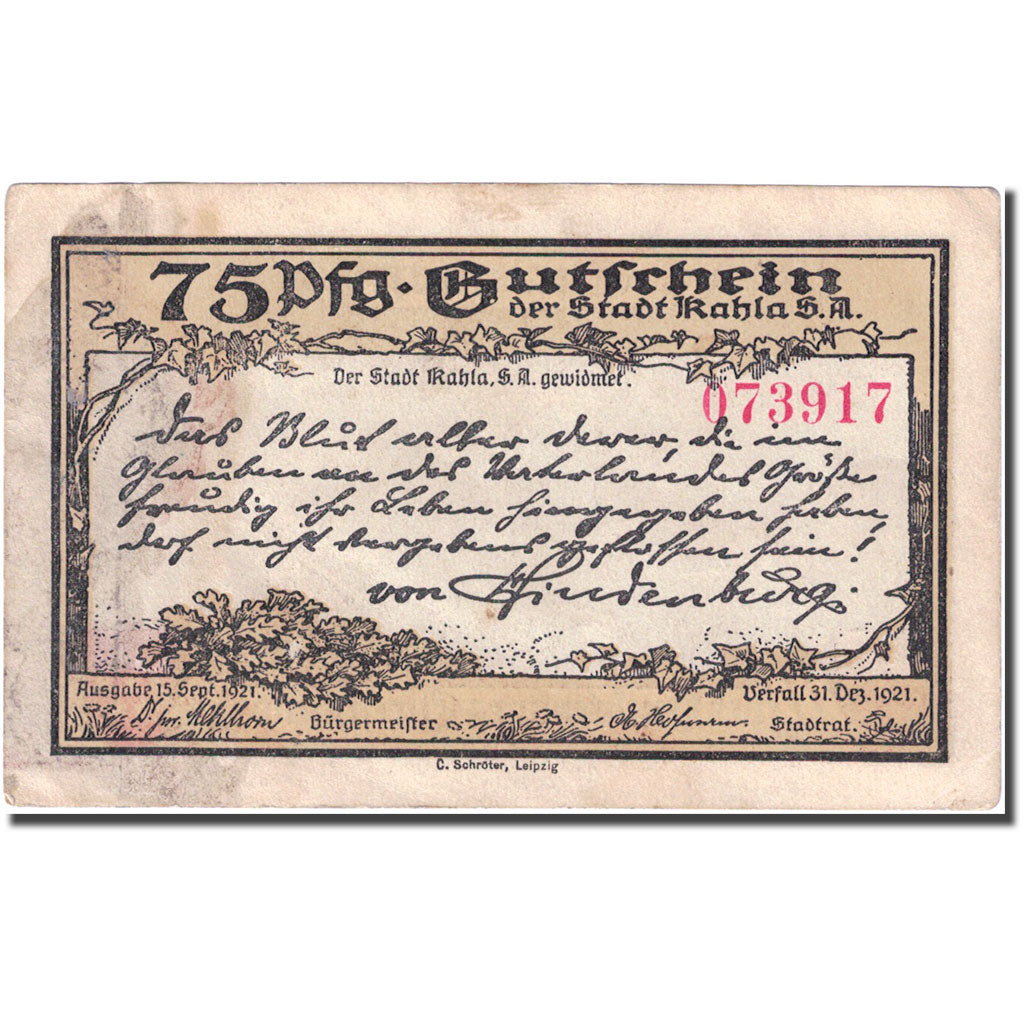 75 Pfg. Gutschein
der Stadt Kahla S.A.
Der Stadt Kahla, S.A. gewidmet.
073917
Das Blut aller derer, die im
Glauben an des Vaterlandes Größe
freudig ihr Leben hingegeben haben,
darf nicht vergebens geflossen sein!
von Hindenburg.
Ausgabe 15. Sept. 1921. Verfall 31. Dez. 1921.
Bürgermeister Stadtrat.
C. Schröter, Leipzig